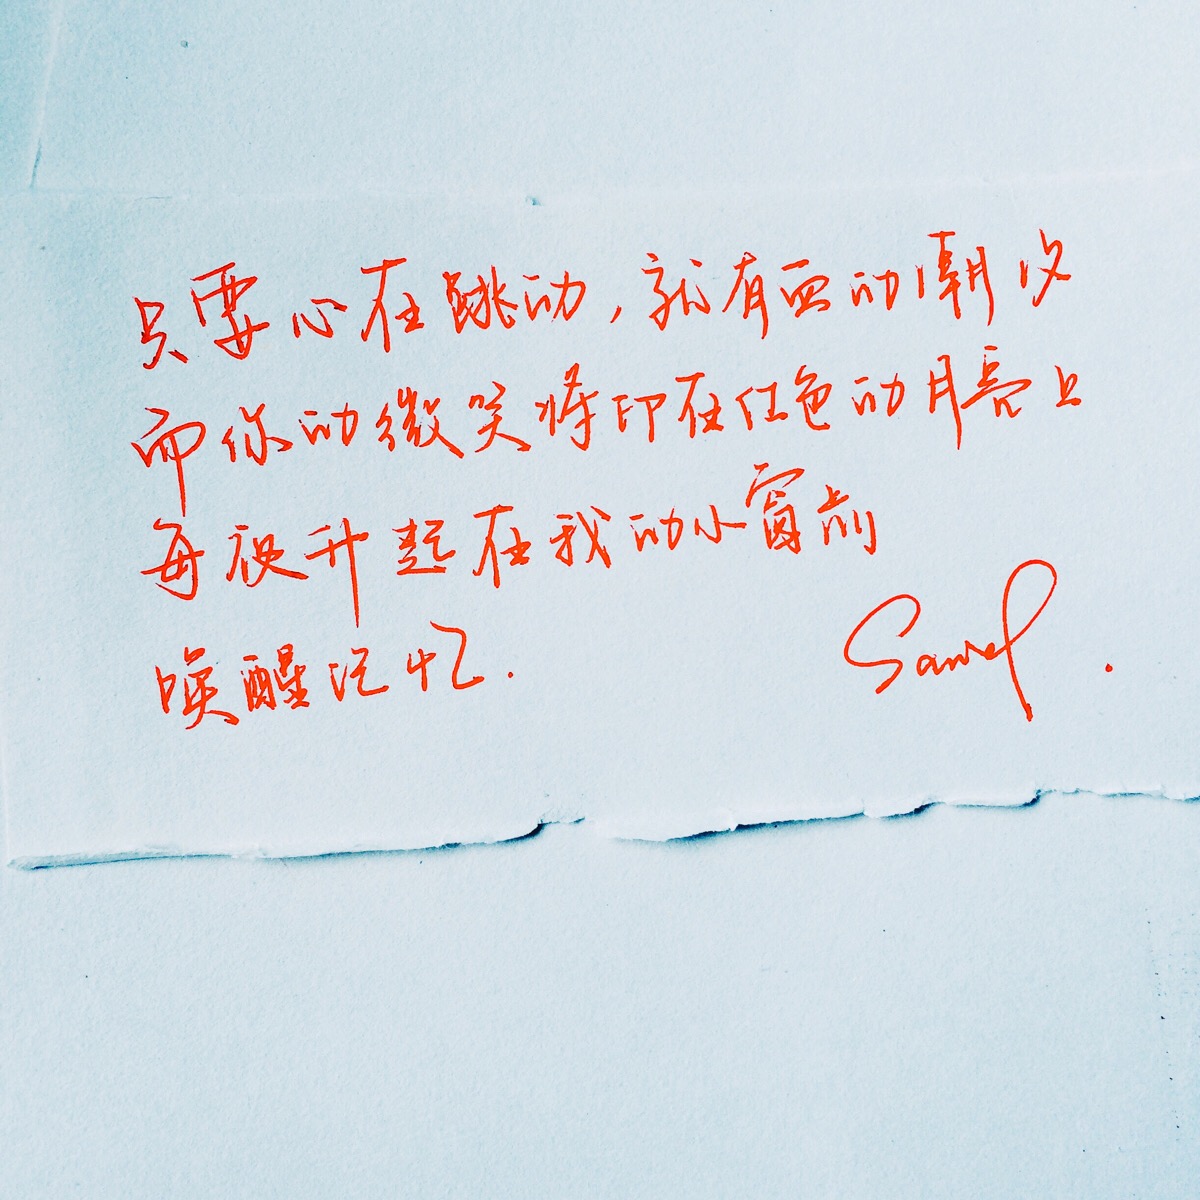 只要心在跳动，就有血的潮汐
而你的微笑将印在红色的月亮上
每夜升起在我的小窗前
唤醒记忆.